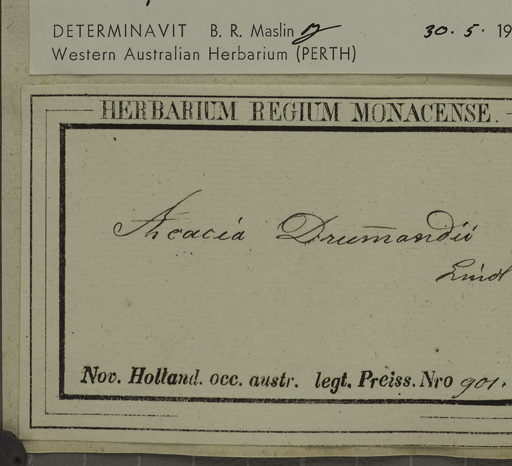 DETERMINAVIT B. R. Maslin 30. 5. 19
Western Australian Herbarium (PERTH)
HERBARIUM REGIUM MONACENSE.
Acacia Drum̄ondii
Lindl
Nov. Holland. occ. austr. legt. Preiss. Nro 901.